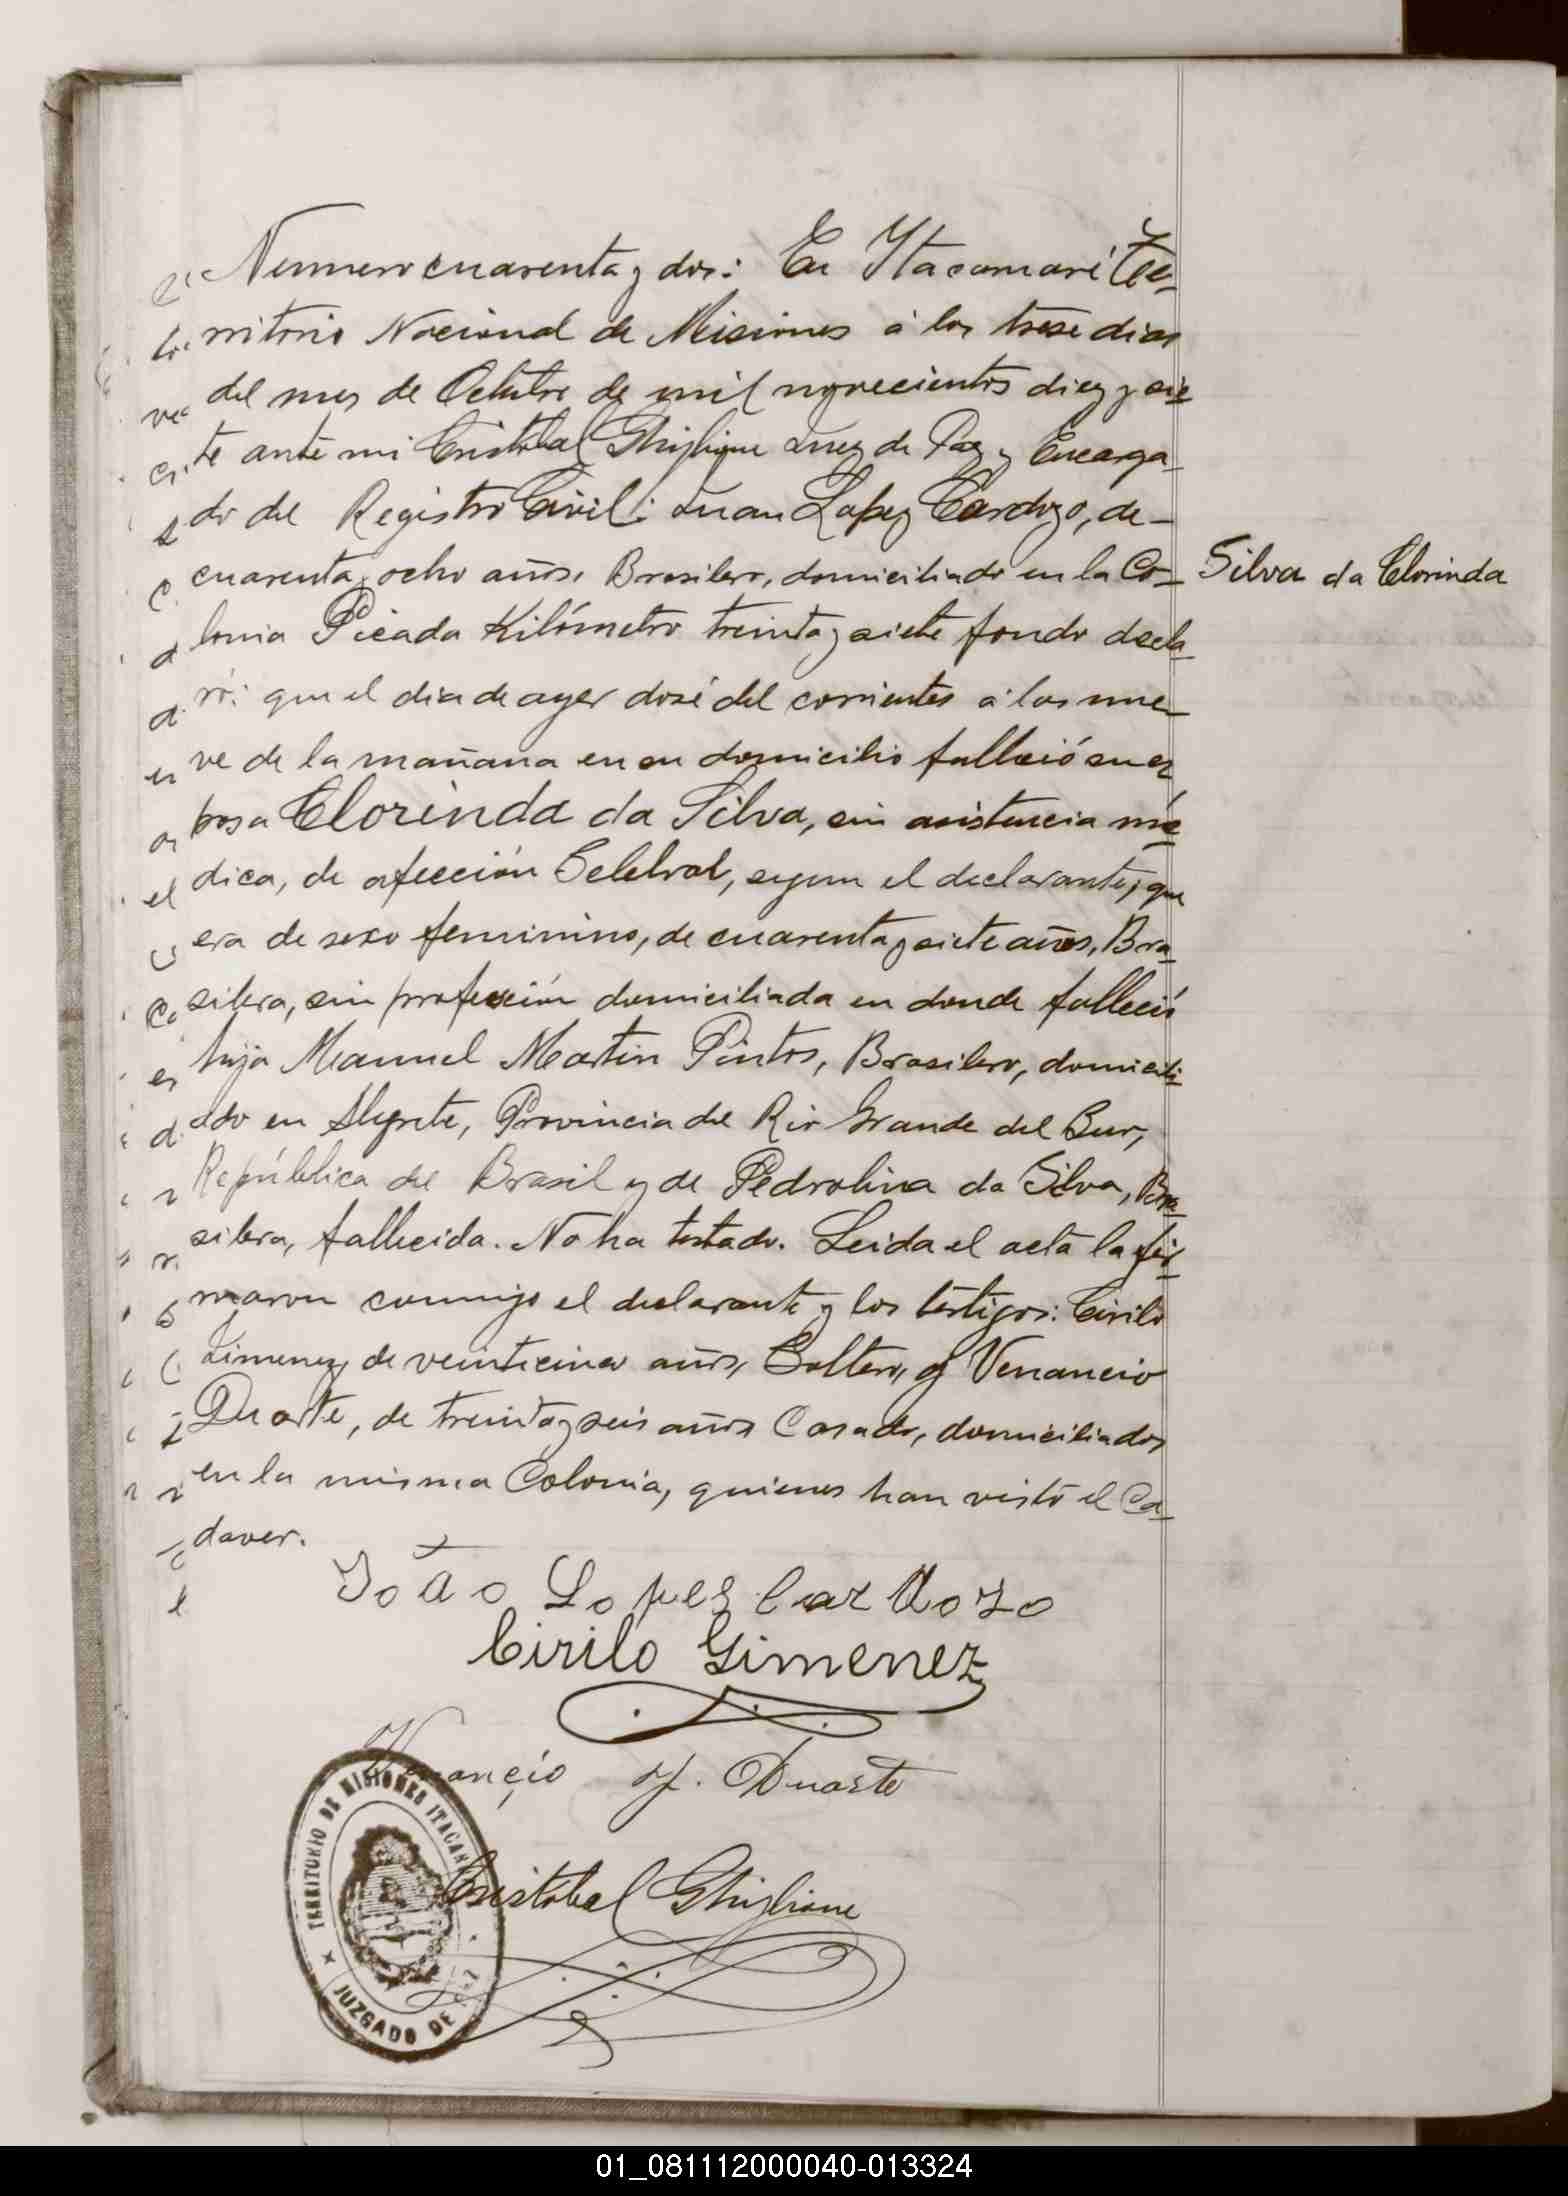 Numero cuarenta y dos: En Itacaruaré Te-
rritorio Nacional de Misiones á los trese dias
del mes de Octubre de mil novecientos diez y sie
te ante mi Cristóbal Ghiglione Juez de Paz y Encarga-
do del Registro Civil: Juan Lopez Cardozo, de-
cuarenta y ocho años, Brasilero, domiciliado en la Co-
Silva da Clorinda
lonia Picada Kilómetro treinta y siete fondo decla-
ró: que el dia de ayer dosé del corrientes á las nue-
ve de la mañana en su domicilio falleció su es
posa Clorinda da Silva, sin asistencia mé
dica, de afección Celebral, segun el declarante, que
era de sexo feminino, de cuarenta y siete años, Bra-
silera, sin profesión domiciliada en donde falleció
hija Manuel Martin Pintos, Brasilero, domicili-
ado en Alegrete, Provincia del Rio Grande del Sur,
República del Brasil y de Pedrolina da Silva, Bra-
silera, fallecida. No ha testado. Leida el acta la fir-
maron conmigo el declarante y los testigos: Cirilo
Jimenez, de veinticinco años, Soltero, y Venancio
Duarte, de treinta y seis años Casado, domiciliados
en la misma Colonia, quienes han visto el Ca-
daver.
João Lopes Cardozo
Cirilo Gimenez
Venançio Duarte
TERRITORIO DE MISIONES
JUZGADO DE PAZ
Cristóbal Ghiglione
01_081112000040-013324